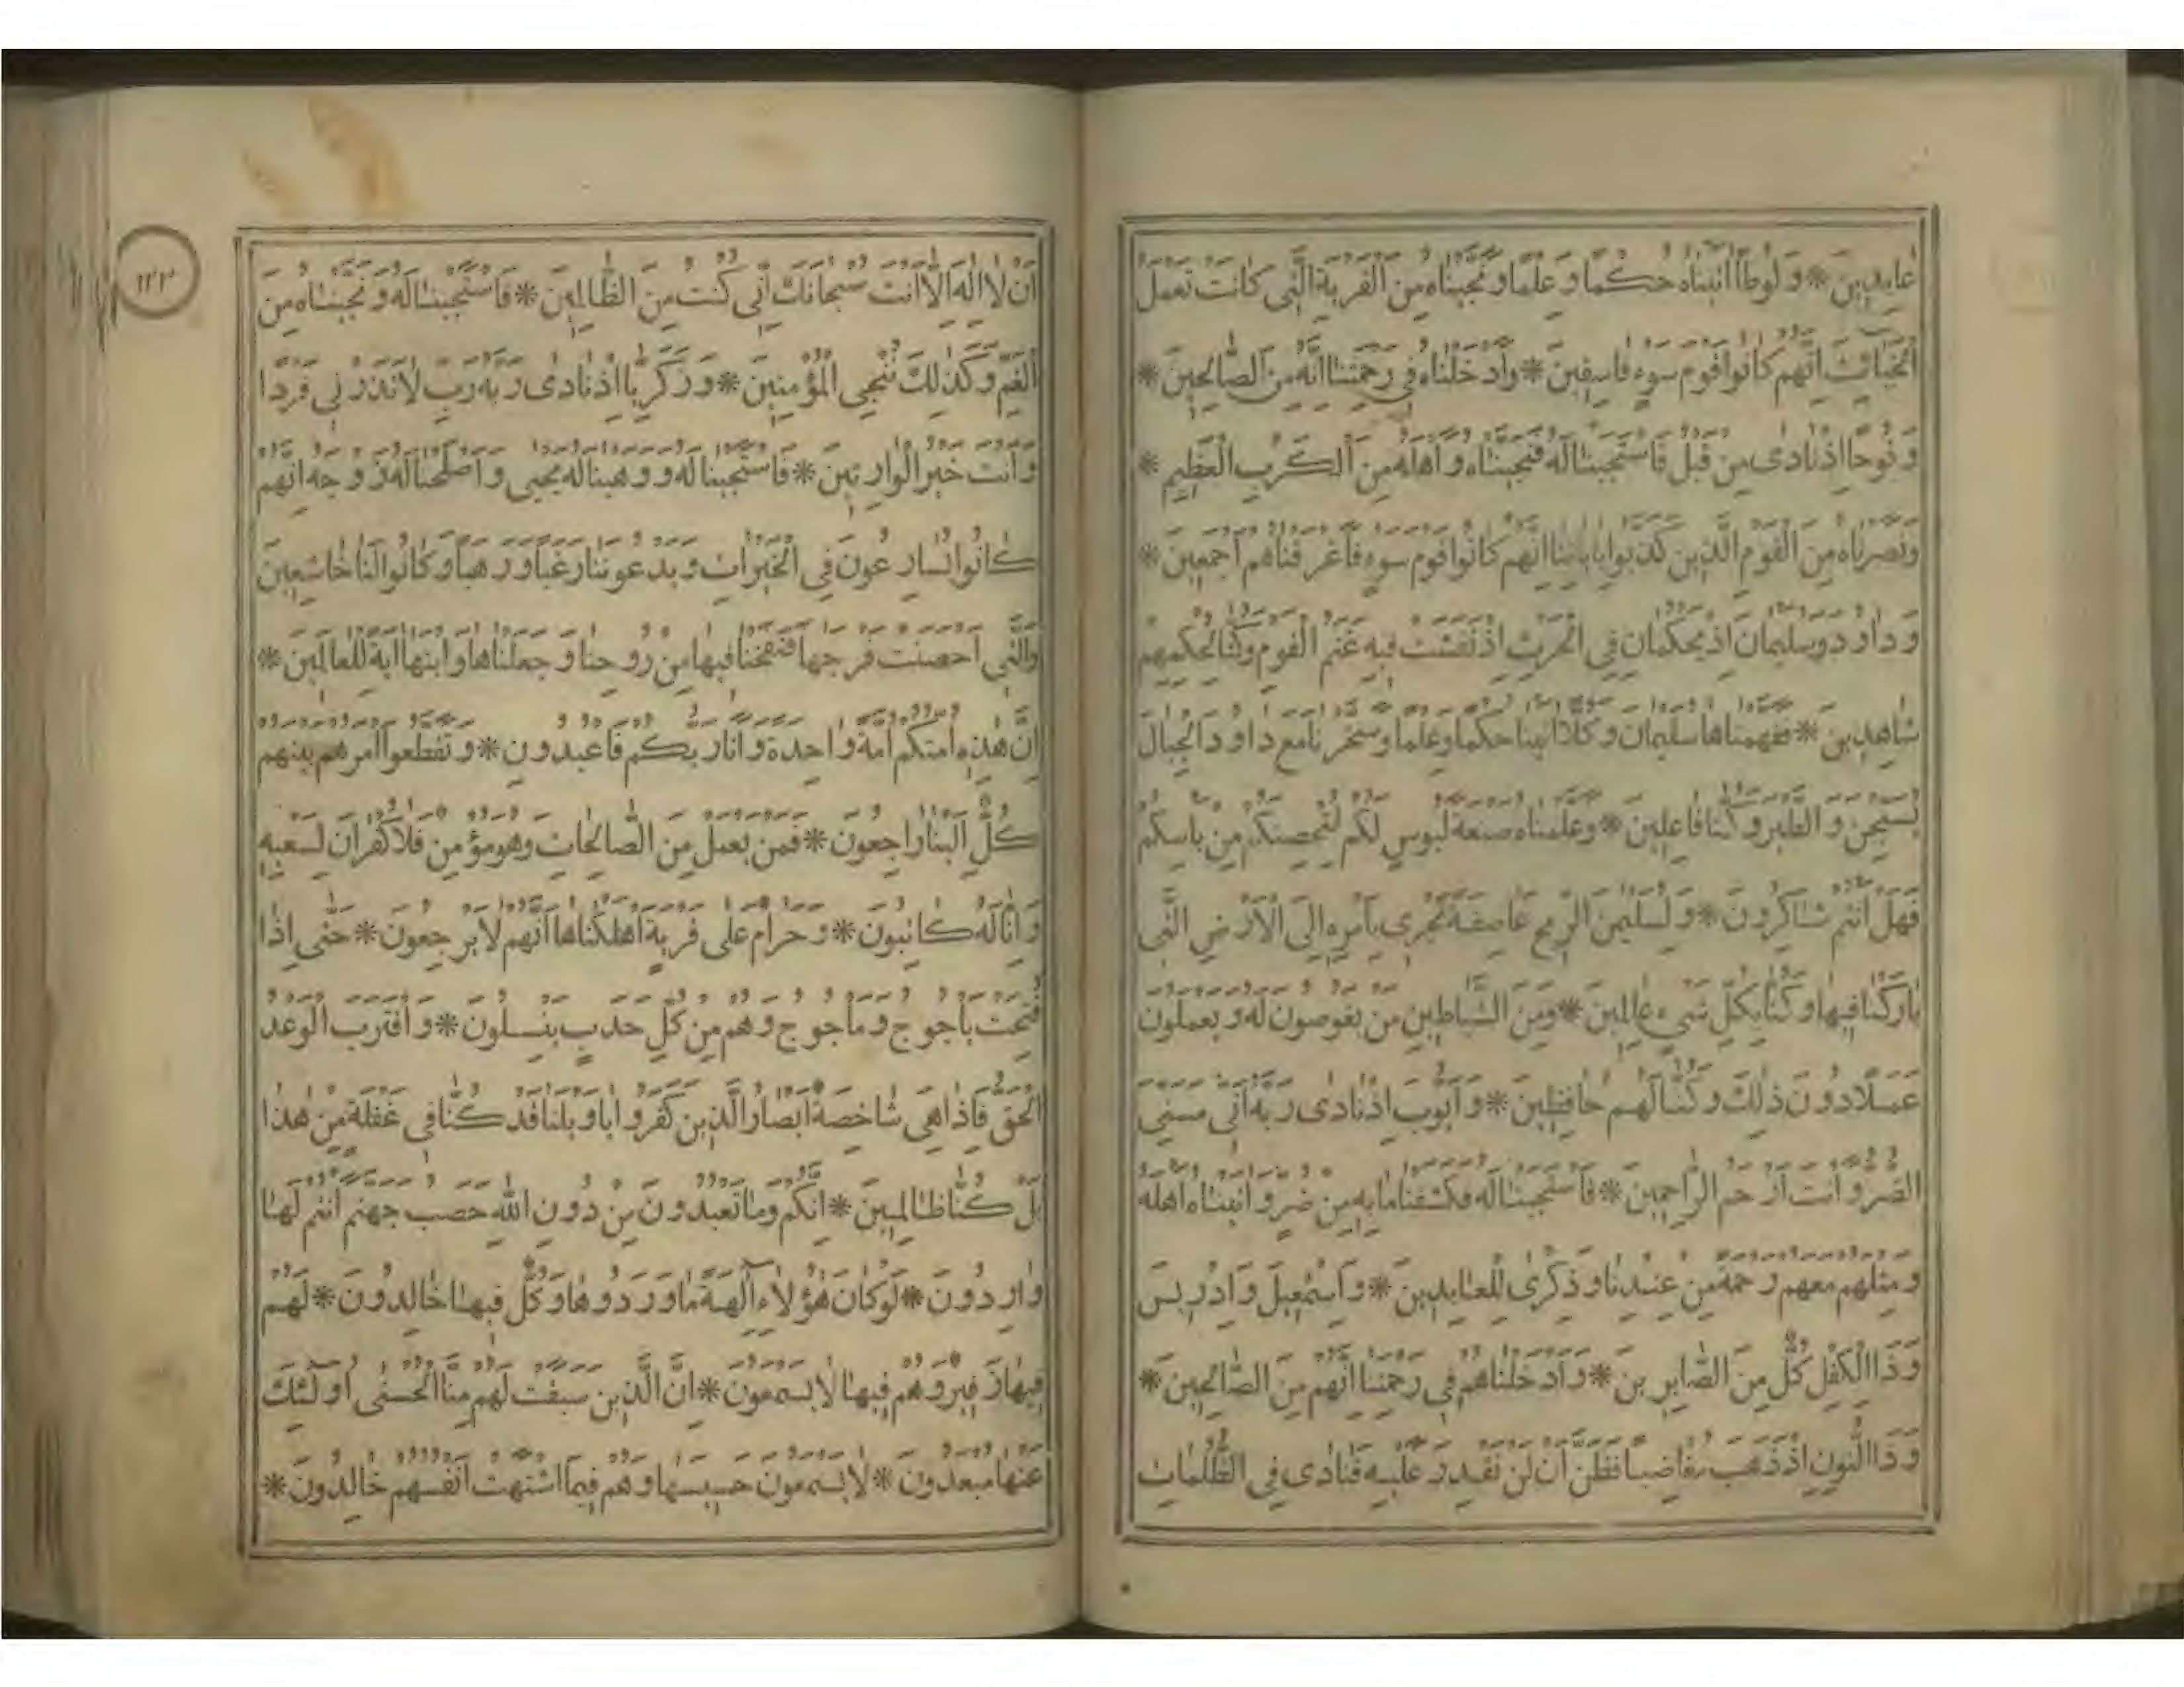 عابدين * ولوطا اتيناه حكما وعلما ونجيناه من القرية التى كانت تعمل
الخبائث انهم كانوا قوم سوء فاسقين * وادخلناه فى رحمتنا انه من الصالحين *
ونوحا اذ نادى من قبل فاستجبنا له فنجيناه واهله من الكرب العظيم *
ونصرناه من القوم الذين كذبوا باياتنا انهم كانوا قوم سوء فاغرقناهم اجمعين *
وداود وسليمان اذ يحكمان فى الحرث اذ نفشت فيه غنم القوم وكنا لحكمهم
شاهدين * ففهمناها سليمان وكلا اتينا حكما وعلما وسخرنا مع داود الجبال
يسبحن والطير وكنا فاعلين * وعلمناه صنعة لبوس لكم لتحصنكم من باسكم
فهل انتم شاكرون * ولسليمن الريح عاصفة تجرى بامره الى الارض التى
باركنا فيها وكنا بكل شىء عالمين * ومن الشياطين من يغوصون له ويعملون
عملا دون ذلك وكنا لهم حافظين * وايوب اذ نادى ربه انى مسنى
الضر وانت ارحم الراحمين * فاستجبنا له فكشفنا ما به من ضر واتيناه اهله
ومثلهم معهم رحمة من عندنا وذكرى للعابدين * واسمعيل وادريس
وذا الكفل كل من الصابرين * وادخلناهم فى رحمتنا انهم من الصالحين *
وذا النون اذ ذهب مغاضبا فظن ان لن نقدر عليه فنادى فى الظلمات
١٢٣
ان لا اله الا انت سبحانك انى كنت من الظالمين * فاستجبنا له ونجيناه من
الغم وكذلك ننجى المؤمنين * وزكريا اذ نادى ربه رب لا تذرنى فردا
وانت خير الوارثين * فاستجبنا له ووهبنا له يحيى واصلحنا له زوجه انهم
كانوا يسارعون فى الخيرات ويدعوننا رغبا ورهبا وكانوا لنا خاشعين
والتى احصنت فرجها فنفخنا فيها من روحنا وجعلناها وابنها اية للعالمين *
ان هذه امتكم امة واحدة وانا ربكم فاعبدون * وتقطعوا امرهم بينهم
كل الينا راجعون * فمن يعمل من الصالحات وهو مؤمن فلا كفران لسعيه
وانا له كاتبون * وحرام على قرية اهلكناها انهم لا يرجعون * حتى اذا
فتحت ياجوج وماجوج وهم من كل حدب ينسلون * واقترب الوعد
الحق فاذا هى شاخصة ابصار الذين كفروا يا ويلنا قد كنا فى غفلة من هذا
بل كنا ظالمين * انكم وما تعبدون من دون الله حصب جهنم انتم لها
واردون * لو كان هؤلاء الهة ما وردوها وكل فيها خالدون * لهم
فيها زفير وهم فيها لا يسمعون * ان الذين سبقت لهم منا الحسنى اولئك
عنها مبعدون * لا يسمعون حسيسها وهم فيما اشتهت انفسهم خالدون *